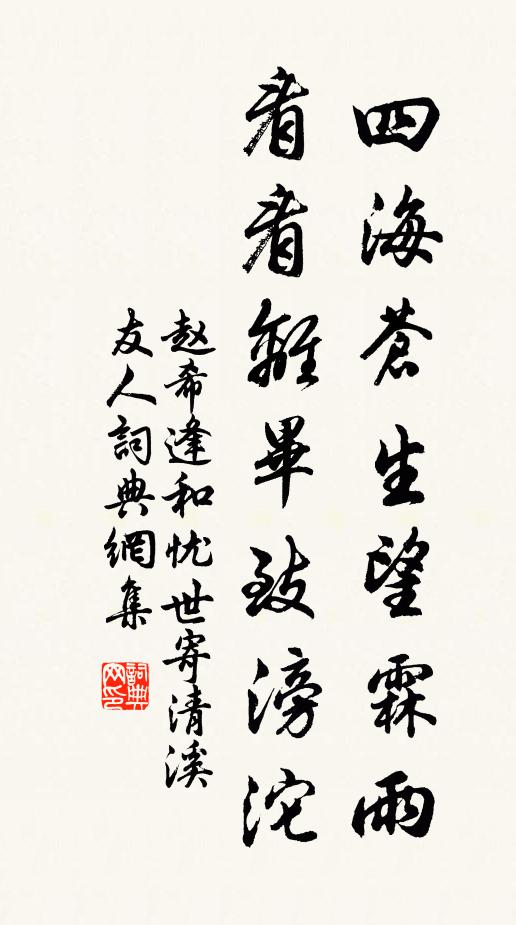 四海蒼生望霖雨
看看離畢致滂沱
赵希逢和忧世寄清溪
友人詞典網集
詞典网印